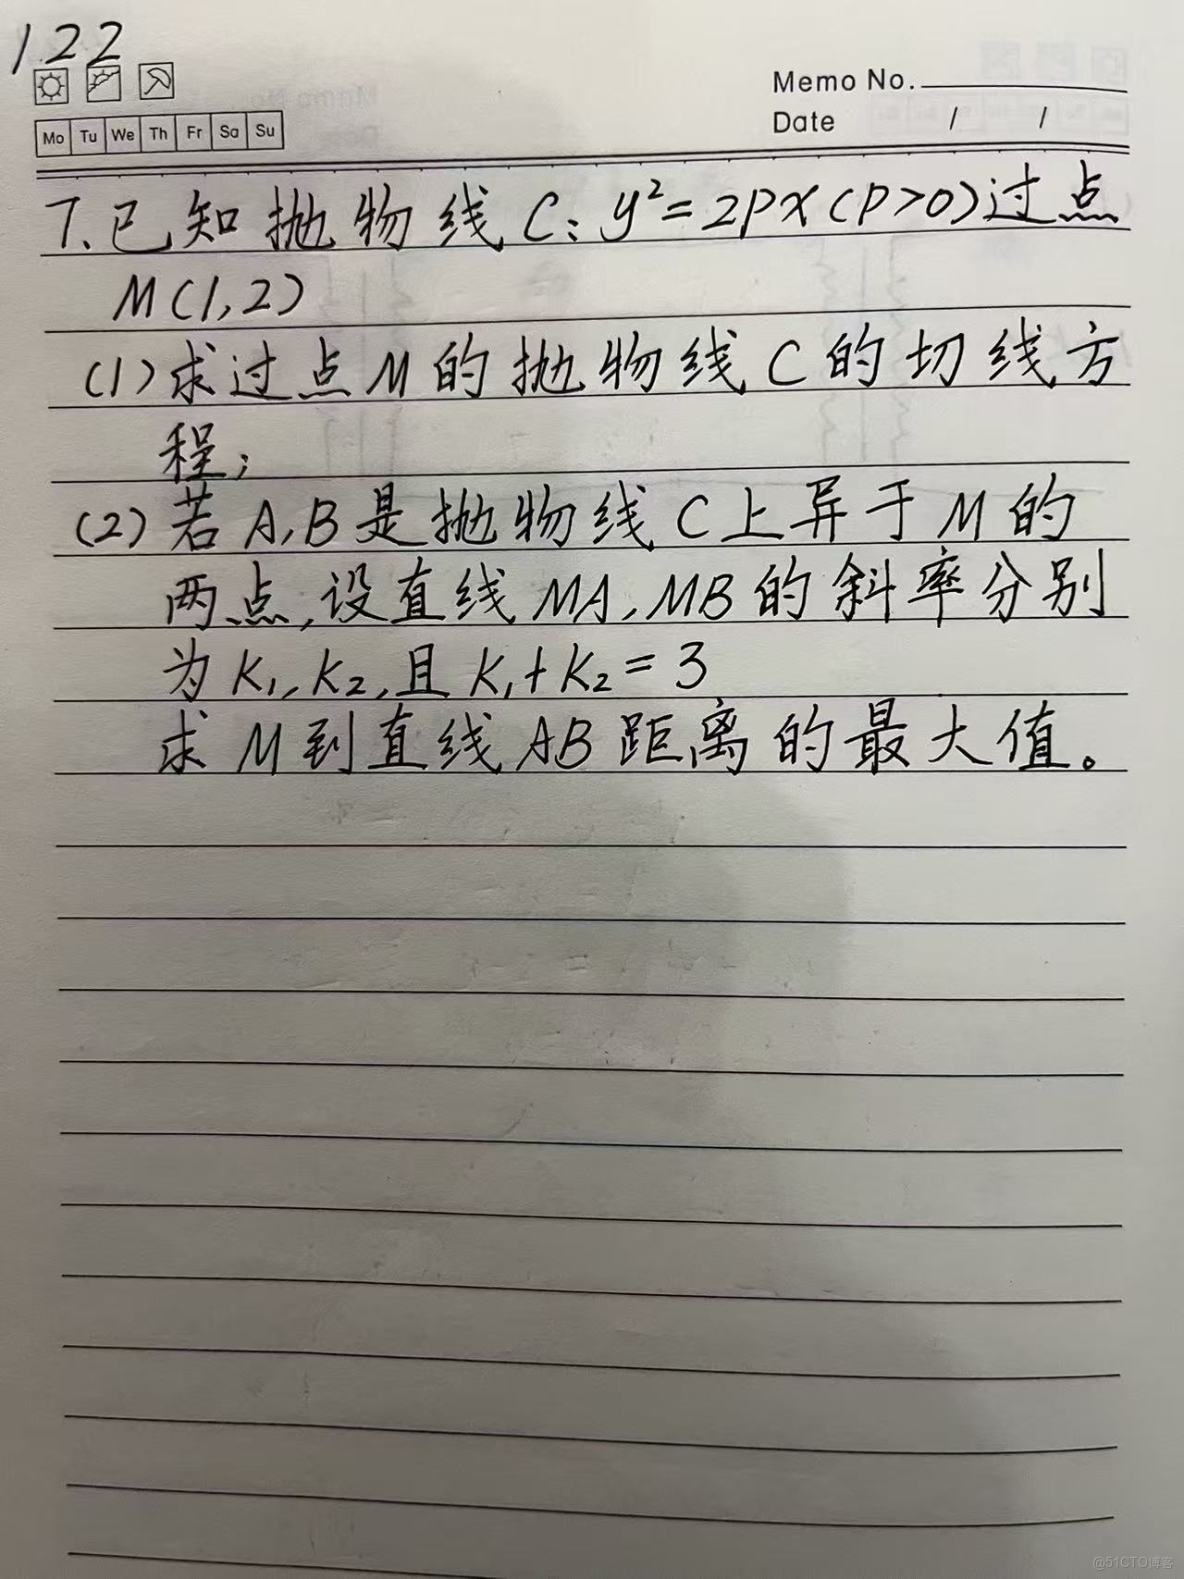 122
Memo No.
Mo Tu We Th Fr Sa Su
Date / /
7.已知抛物线C:y²=2px(p>0)过点
M(1,2)
(1)求过点M的抛物线C的切线方
程;
(2)若A,B是抛物线C上异于M的
两点,设直线MA,MB的斜率分别
为K₁,K₂,且K₁+K₂=3
求M到直线AB距离的最大值。
@51CTO博客